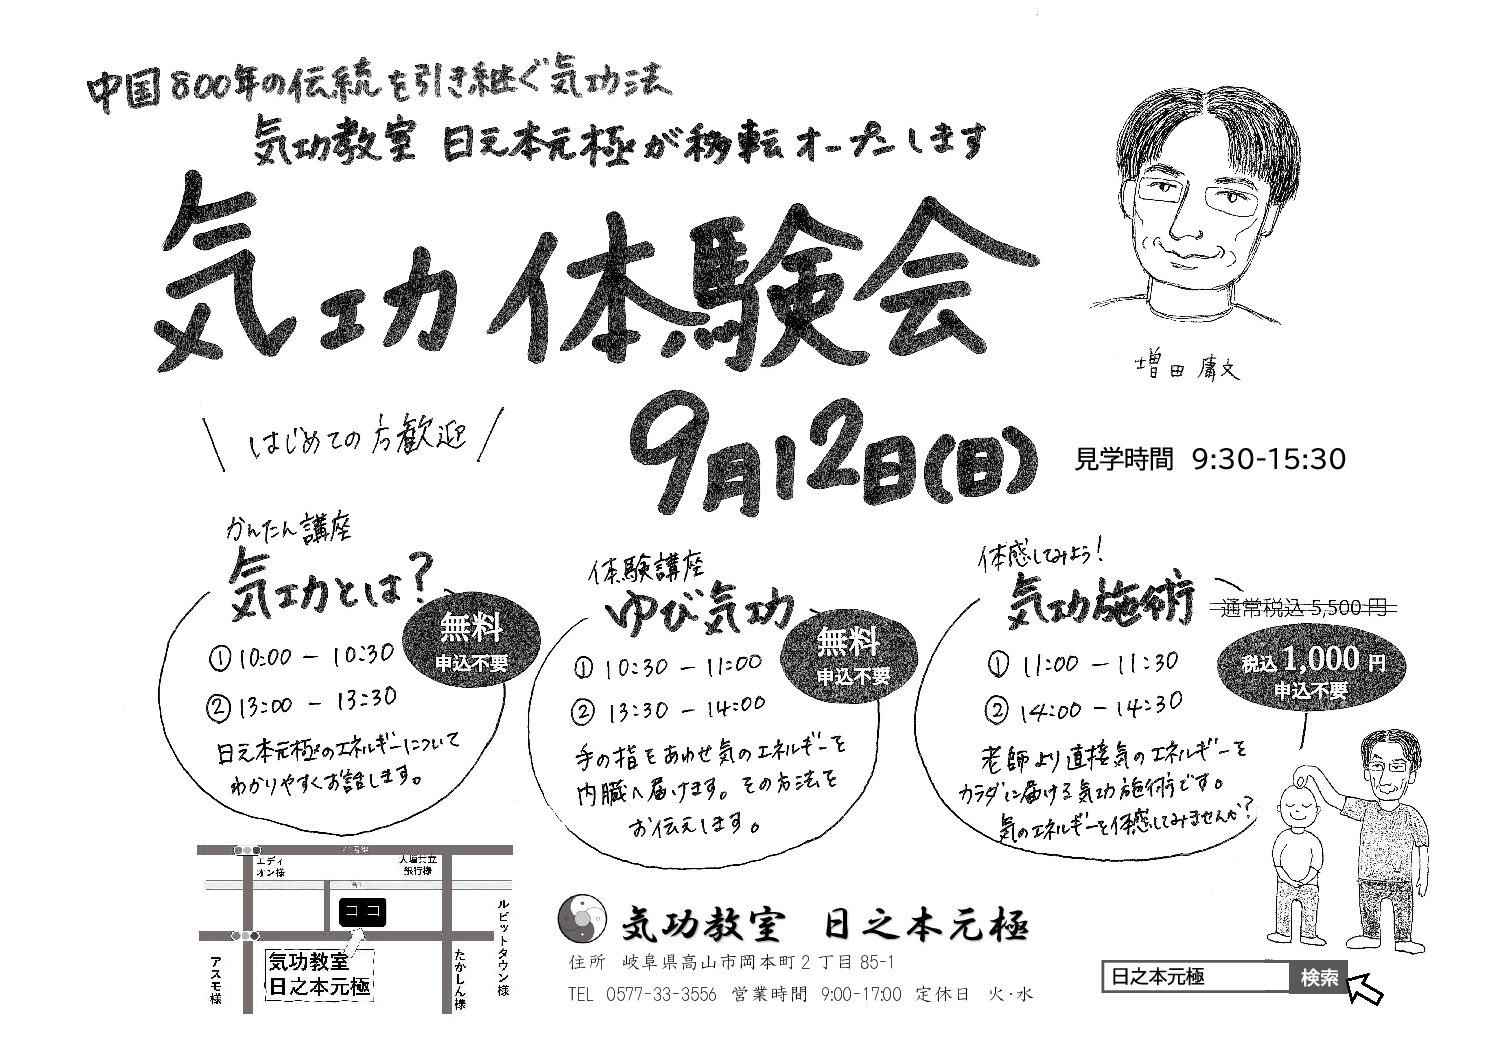 中国800年の伝統を引き継ぐ気功法
気功教室 日元本元極が移転オープンします
気功体験会
増田庸文
はじめての方歓迎
9月12日(日)
見学時間 9:30-15:30
かんたん講座
気功とは?
無料
申込不要
①10:00 - 10:30
②13:00 - 13:30
日元本元極のエネルギーについて
わかりやすくお話します。
体験講座
ゆび気功
無料
申込不要
① 10:30 - 11:00
② 13:30 - 14:00
手の指をあわせ気のエネルギーを
内臓へ届けます。その方法を
お伝えします。
体感してみよう!
気功施術
通常税込 5,500 円
税込 1,000 円
申込不要
① 11:00 - 11:30
② 14:00 - 14:30
老師より直接気のエネルギーを
カラダに届ける気功施術です。
気のエネルギーを体感してみませんか?
41号線
エディ
オン様
大垣共立
銀行様
ココ
ルビットタウン様
アスモ様
気功教室
日之本元極
たかしん様
気功教室 日之本元極
住所 岐阜県高山市岡本町2丁目85-1
TEL 0577-33-3556 営業時間 9:00-17:00 定休日 火・水
日之本元極 検索